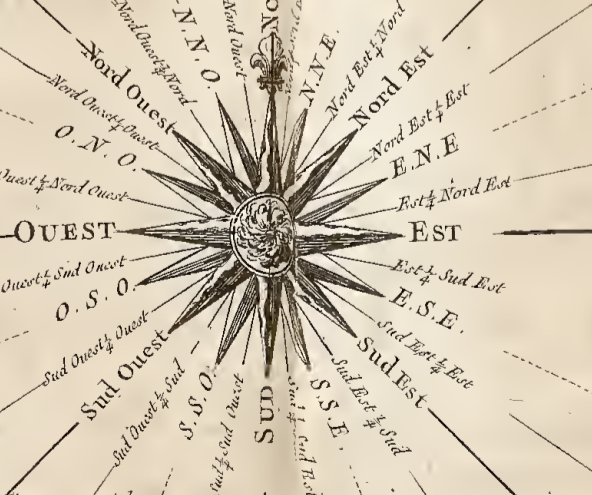 No
N.N.E.
Nord Est ¼ Nord
Nord Est
Nord Est ¼ Est
E.N.E
Est ¼ Nord Est
EST
Est ¼ Sud Est
E.S.E.
Sud Est ¼ Est
Sud Est
Sud Est ¼ Sud
S.S.E.
SUD
Sud ¼ Sud Ouest
S.S.O.
Sud Ouest ¼ Sud
Sud Ouest
Sud Ouest ¼ Ouest
O.S.O.
Ouest ¼ Sud Ouest
OUEST
Ouest ¼ Nord Ouest
O.N.O.
Nord Ouest ¼ Ouest
Nord Ouest
Nord Ouest ¼ Nord
N.N.O.
Nord Ouest